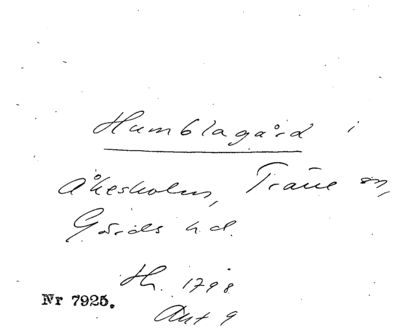 Humblagård i
Åkesholm, Träne sn,
Gärds hd.
Hh. 1798
Nr 7925.
Aut 9